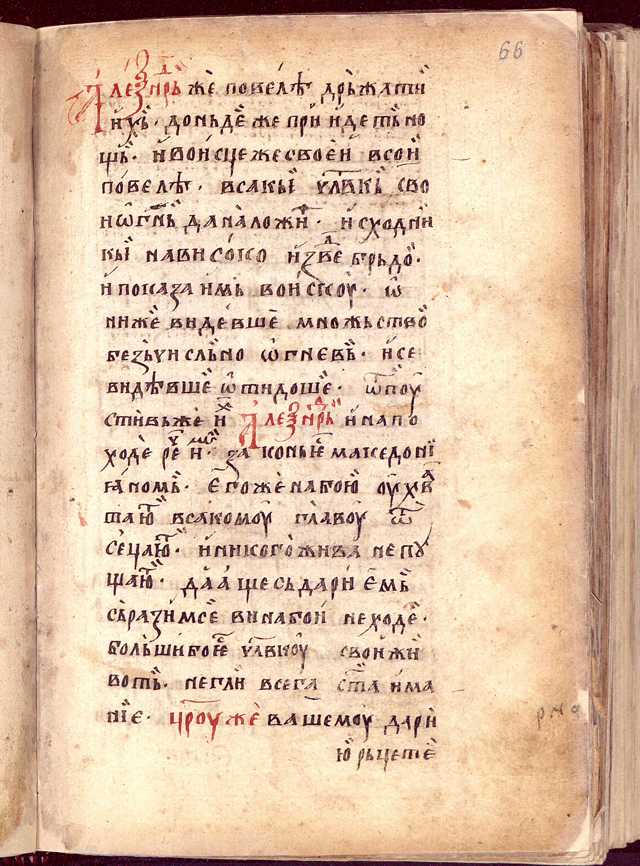 66
Але҇ѯн҇дрь же повелѣ дрьжати
ихь· доньде же прїидеть но
щь· и воисце же своеи всои
повелѣ· всакы ч҃лвкь сво
и ѡгн҃ь да наложи· исходни
кы на високо изве брьдо·
и показа имь воискоу· ѡ
ниже видевше множьство
безьчисльно ѡгневь· и се
видѣвше ѿтидоше· ѿпоу
стивь же и Алеѯндрь и на по
ходе реч имь· законь е македонї
ꙗномь· его же на бою оухва
таю всакомоу главоу ѿ
сецаю· и никого жива не пу
щаю· да аще сь дарїемь
сьразимсе ви на бои не ходе·
больши бо е ч҃лвкоу свои жи
воть· негли всега с҃та има
нїе· ц҃роу же вашемоу дарї
ю рьцете
рн҃з